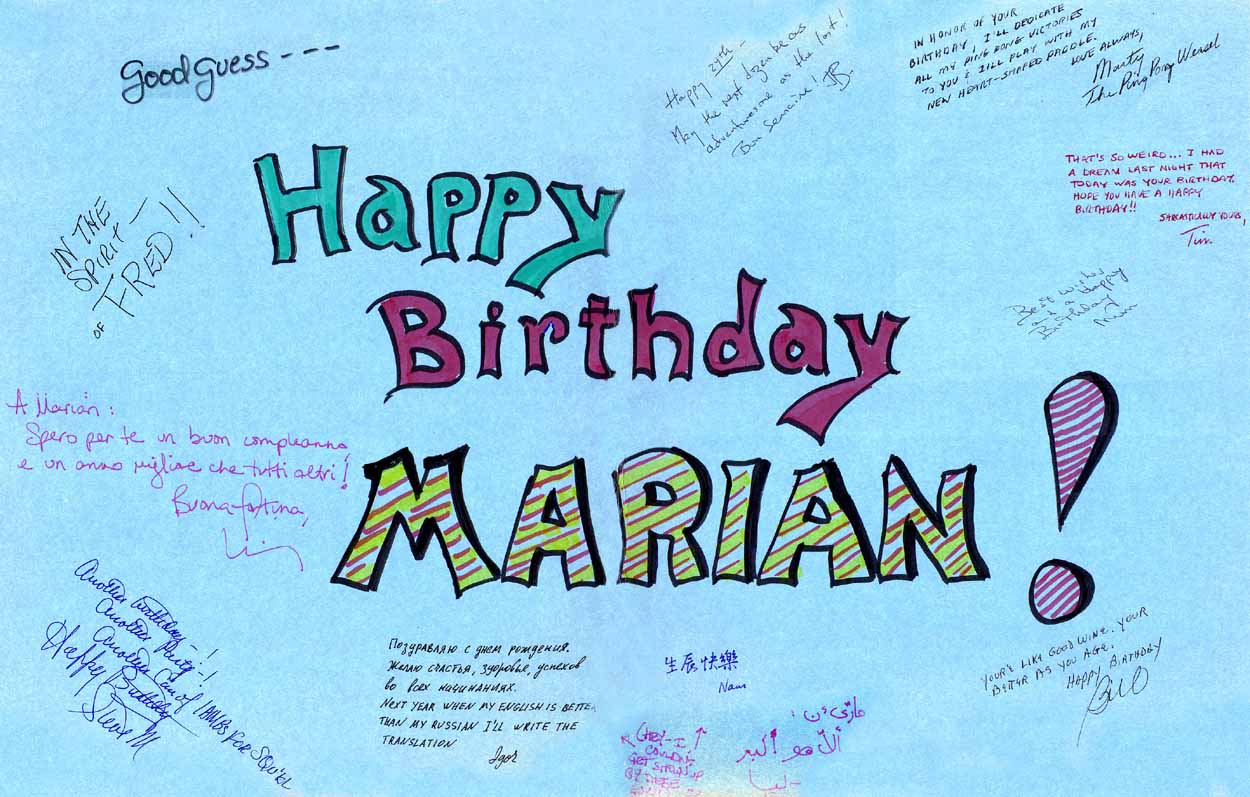 Good Guess - - -
Happy 29th -
May the next dozen be as
adventuresome as the last!
JB
IN HONOR OF YOUR
BIRTHDAY, I'LL DEDICATE
ALL MY PING PONG VICTORIES
TO YOU & I'LL PLAY WITH MY
NEW HEART-SHAPED PADDLE.
LOVE ALWAYS,
Marty
The Ping Pong Weasel
THAT'S SO WEIRD... I HAD
A DREAM LAST NIGHT THAT
TODAY WAS YOUR BIRTHDAY.
HOPE YOU HAVE A HAPPY
BIRTHDAY!!
SARCASTICALLY YOURS,
Tim.
Happy
Birthday
MARIAN!
IN THE
SPIRIT —
OF FRED!!
Best wishes
and a Happy
Birthday
A Marian:
Spero per te un buon compleanno,
e un anno migliore che tutti altri!
Buona fortuna,
Another birthday -
Another Party - !
Another Can of IAMBS FOR SQUEL
Happy Birthday
Steve M
Поздравляю с днем рождения.
Желаю счастья, здоровья, успехов
во всех начинаниях.
NEXT YEAR WHEN MY ENGLISH IS BETTER
THAN MY RUSSIAN I'LL WRITE THE
TRANSLATION
Igor
生辰快樂
Nam
COULDN'T
GET SHOWN UP
BY THESE
YOUR'E LIKE GOOD WINE. YOUR
BETTER AS YOU AGE.
HAPPY BIRTHDAY
Bill